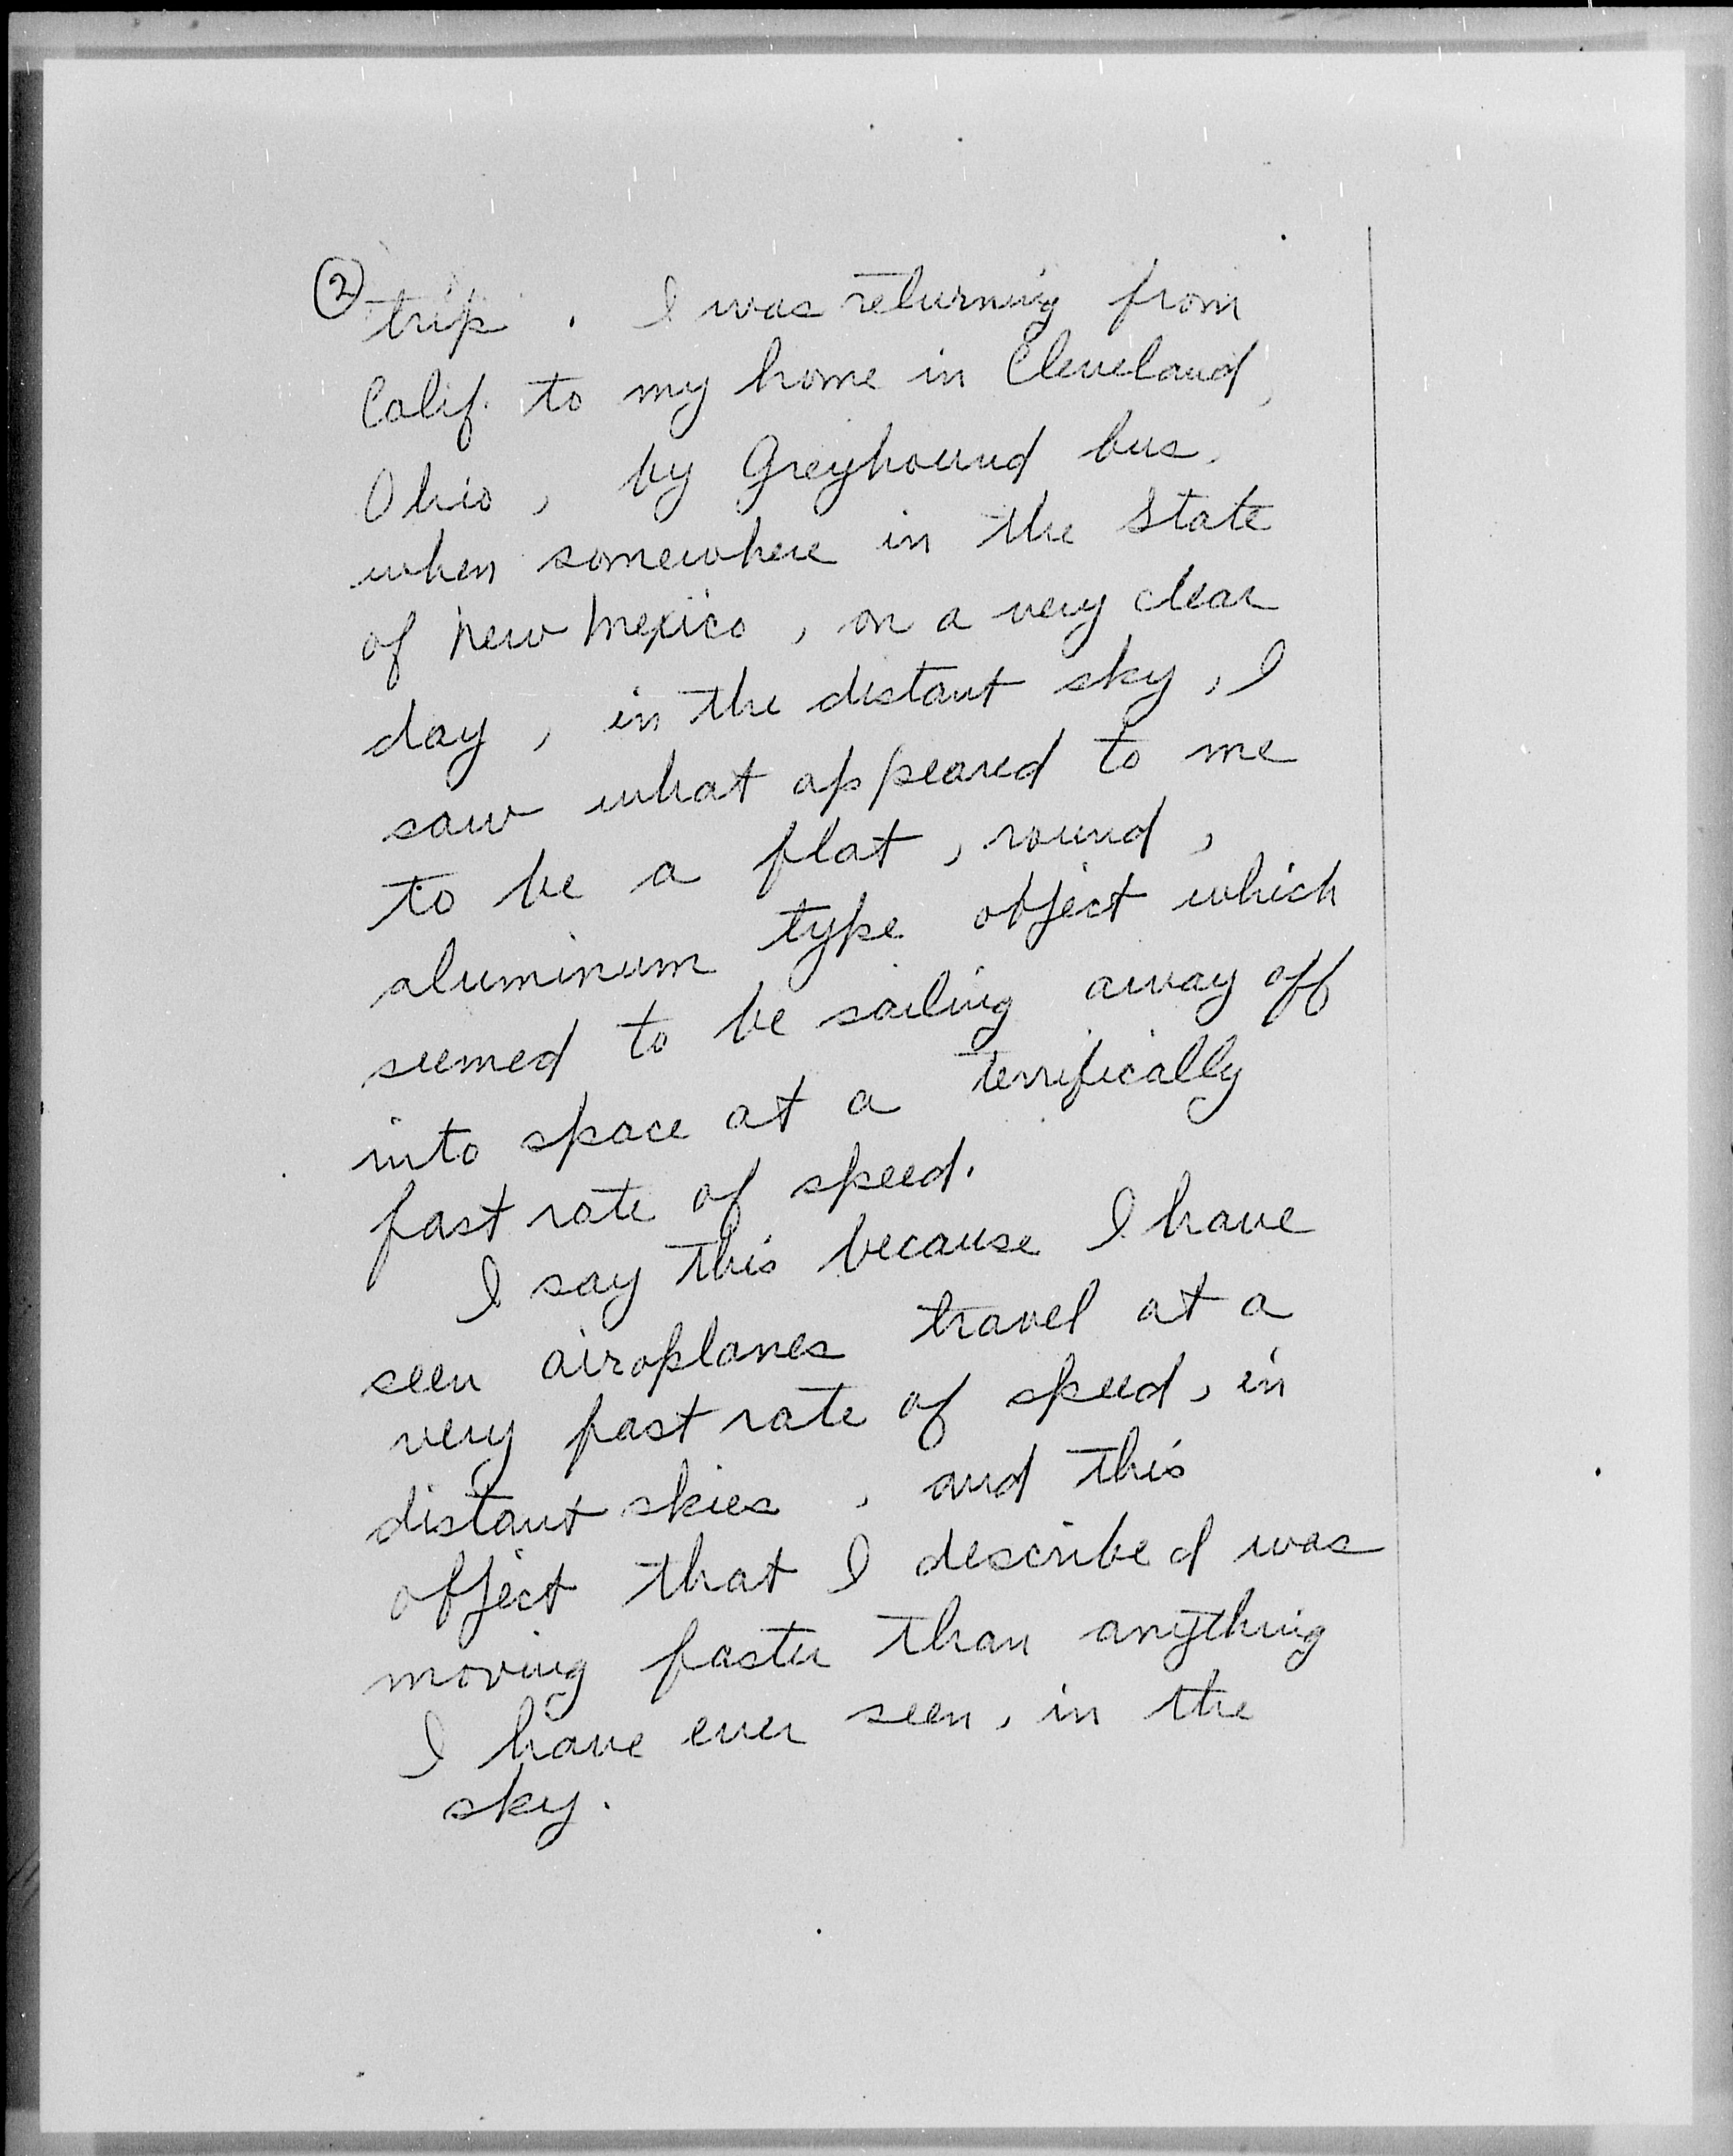 ②
trip. I was returning from
Calif. to my home in Cleveland,
Ohio, by Greyhound bus,
when somewhere in the State
of New Mexico, on a very clear
day, in the distant sky, I
saw what appeared to me
to be a flat, round,
aluminum type object which
seemed to be sailing away off
into space at a terrifically
fast rate of speed.
I say this because I have
seen airoplanes travel at a
very fast rate of speed, in
distant skies, and this
object that I described was
moving faster than anything
I have ever seen, in the
sky.